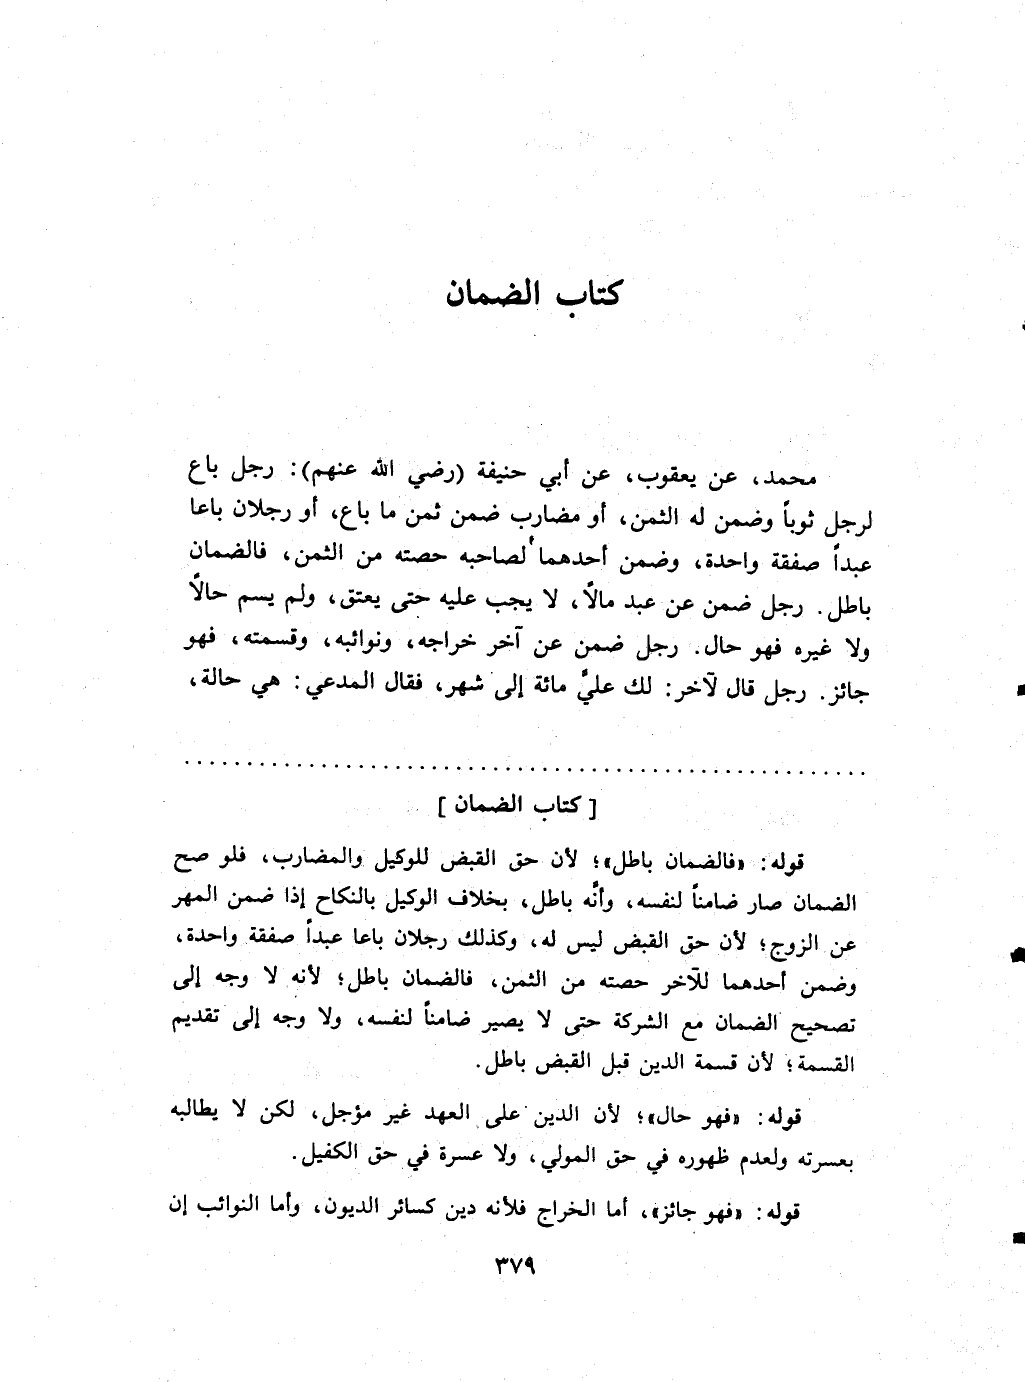 كتاب الضمان
محمد، عن يعقوب، عن أبي حنيفة (رضي الله عنهم): رجل باع
لرجل ثوباً وضمن له الثمن، أو مضارب ضمن ثمن ما باع، أو رجلان باعا
عبداً صفقة واحدة، وضمن أحدهما لصاحبه حصته من الثمن، فالضمان
باطل. رجل ضمن عن عبد مالاً، لا يجب عليه حتى يعتق، ولم يسم حالاً
ولا غيره فهو حال. رجل ضمن عن آخر خراجه، ونوائبه، وقسمته، فهو
جائز. رجل قال لآخر: لك عليَّ مائة إلى شهر، فقال المدعي: هي حالة،
[ كتاب الضمان ]
قوله: «فالضمان باطل»؛ لأن حق القبض للوكيل والمضارب، فلو صح
الضمان صار ضامناً لنفسه، وأنَّه باطل، بخلاف الوكيل بالنكاح إذا ضمن المهر
عن الزوج؛ لأن حق القبض ليس له، وكذلك رجلان باعا عبداً صفقة واحدة،
وضمن أحدهما للآخر حصته من الثمن، فالضمان باطل؛ لأنه لا وجه إلى
تصحيح الضمان مع الشركة حتى لا يصير ضامناً لنفسه، ولا وجه إلى تقديم
القسمة؛ لأن قسمة الدين قبل القبض باطل.
قوله: «فهو حال»؛ لأن الدين على العهد غير مؤجل، لكن لا يطالبه
بعسرته ولعدم ظهوره في حق المولي، ولا عسرة في حق الكفيل.
قوله: «فهو جائز»، أما الخراج فلأنه دين كسائر الديون، وأما النوائب إن
٣٧٩